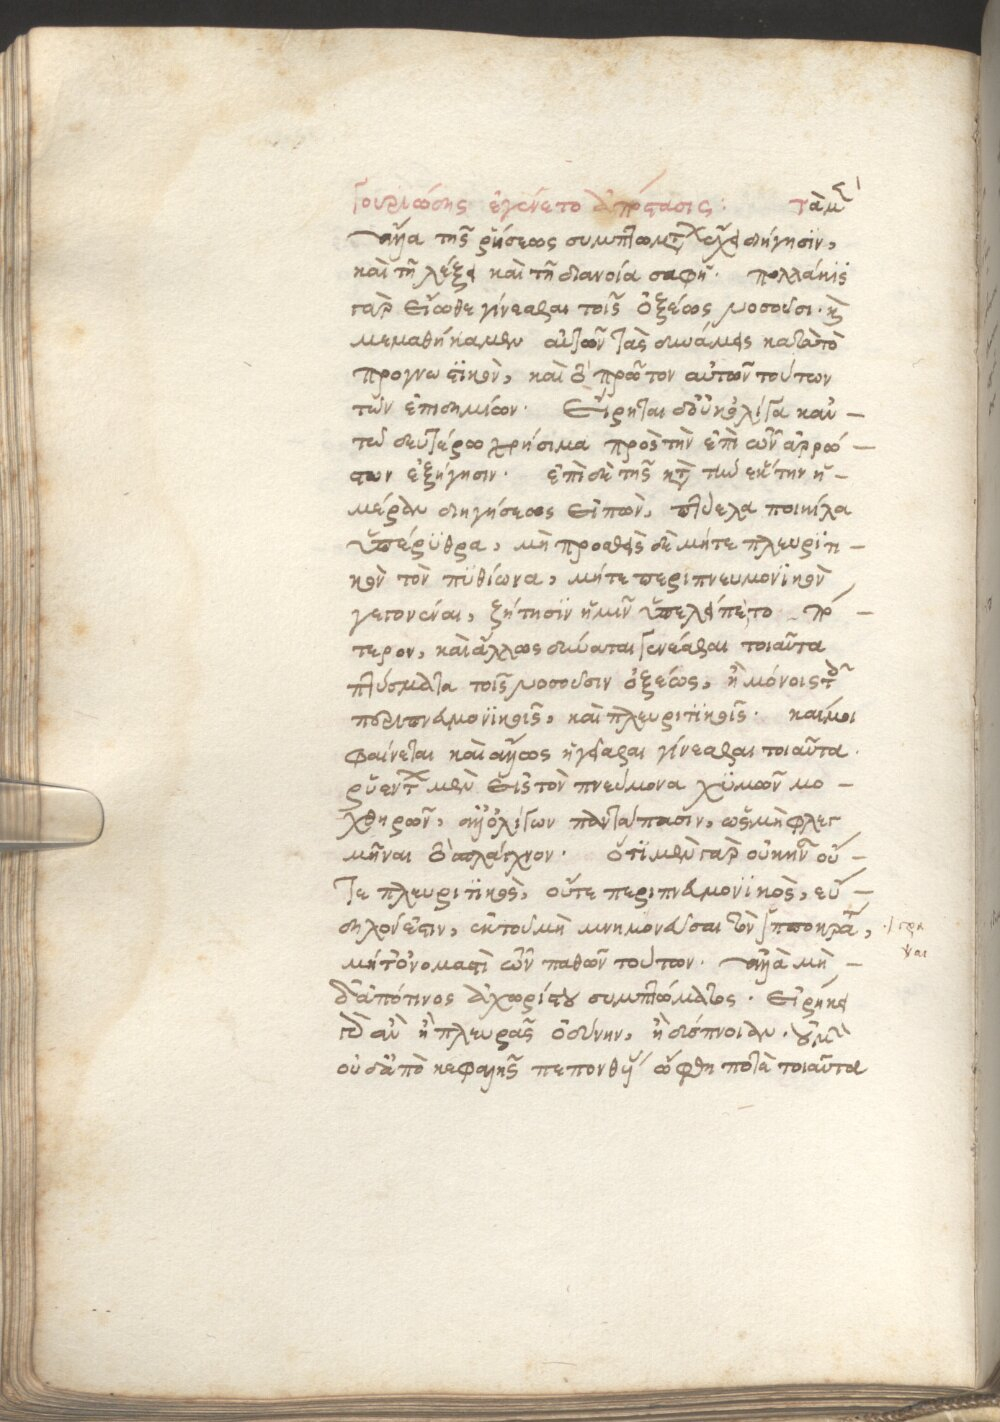 ἰουλιώδης ἐγένετο ἀπόστασις: τὰ μὲν
ἄλλα τῆς ῥήσεως συμπτώματα ἔχει διήγησιν,
καὶ τῇ λέξει καὶ τῇ διανοία σαφῆ. πολλάκις
γὰρ εἴωθε γίνεσθαι τοῖς ὀξέως νοσοῦσι. καὶ
μεμαθήκαμεν αὐτῶν τὰς δυνάμεις κατὰ τὸ
προγνωστικὸν, καὶ τὸ πρῶτον αὐτῶν τούτων
τῶν ἐπιδημιῶν. εἴρηται δ' οὐκ ὀλίγα κἀν
τῶ δευτέρω χρήσιμα πρὸς τὴν ἐπὶ τῶν ἀρρώ-
στων ἐξήγησιν. ἐπὶ δὲ τῆς κατὰ τὴν ἕκτην ἡ-
μέραν διηγήσεως εἰπὼν, πτύελα ποικίλα
ὑπέρυθρα, μὴ προσθεὶς δὲ μήτε πλευριτι-
κὸν τὸν πυθίωνα, μήτε περιπνευμονικὸν
γεγονέναι, ζήτησιν ἡμῖν ὑπελείπετο πό-
τερον, καὶ ἄλλως δύναται γενέσθαι τοιαῦτα
πτύσματα τοῖς νοσοῦσιν ὀξέως, ἢ μόνοις τοῖς
περιπνευμονικοῖς, καὶ πλευριτικοῖς. καί μοι
φαίνεται καὶ ἄλλως ἡγεῖσθαι γίνεσθαι τοιαῦτα.
ῥυέντων μὲν εἰς τὸν πνεύμονα χυμῶν μο-
χθηρῶν, ἀλλ' ὀλίγων παντάπασιν, ὡς μὴ φλεγ
μῆναι τὸ σπλάγχνον. ὅτι μὲν γὰρ οὐκ ἦν οὔ-
τε πλευριτικὸς, οὔτε περιπνευμονικὸς, εὔ-
δηλόν ἐστιν, ἐκ τοῦ μὴ μνημονεῦσαι τὸν ἱπποκρά,
μήτ' ὀνομαστὶ τῶν παθῶν τούτων. ἀλλὰ μὴ
δ' ἀπό τινος ἀχωρίστου συμπτώματος. εἰρήκει
γὰρ ἂν ἢ πλευρᾶς ὀδύνην, ἢ δύσπνοιαν. οὐ μὴν
οὐδ' ἀπὸ κεφαλῆς πεπονθυί ὤφθη ποτὲ τοιαῦτα